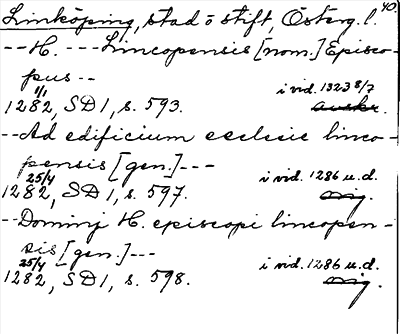 40.
Linköping, stad o stift, Österg. l.
--H. --- Lincopensis [nom.] Episco-
pus --
1/1 i vid. 1323 8/7
1282, SD1, s. 593. avskr.
--Ad edificium ecclesie linco-
pensis [gen.] ---
25/4 i vid. 1286 u.d.
1282, SD1, s. 597. orig.
--Dominj H. episcopi lincopen-
sis [gen.] ---
25/4 i vid. 1286 u.d.
1282, SD1, s. 598. orig.